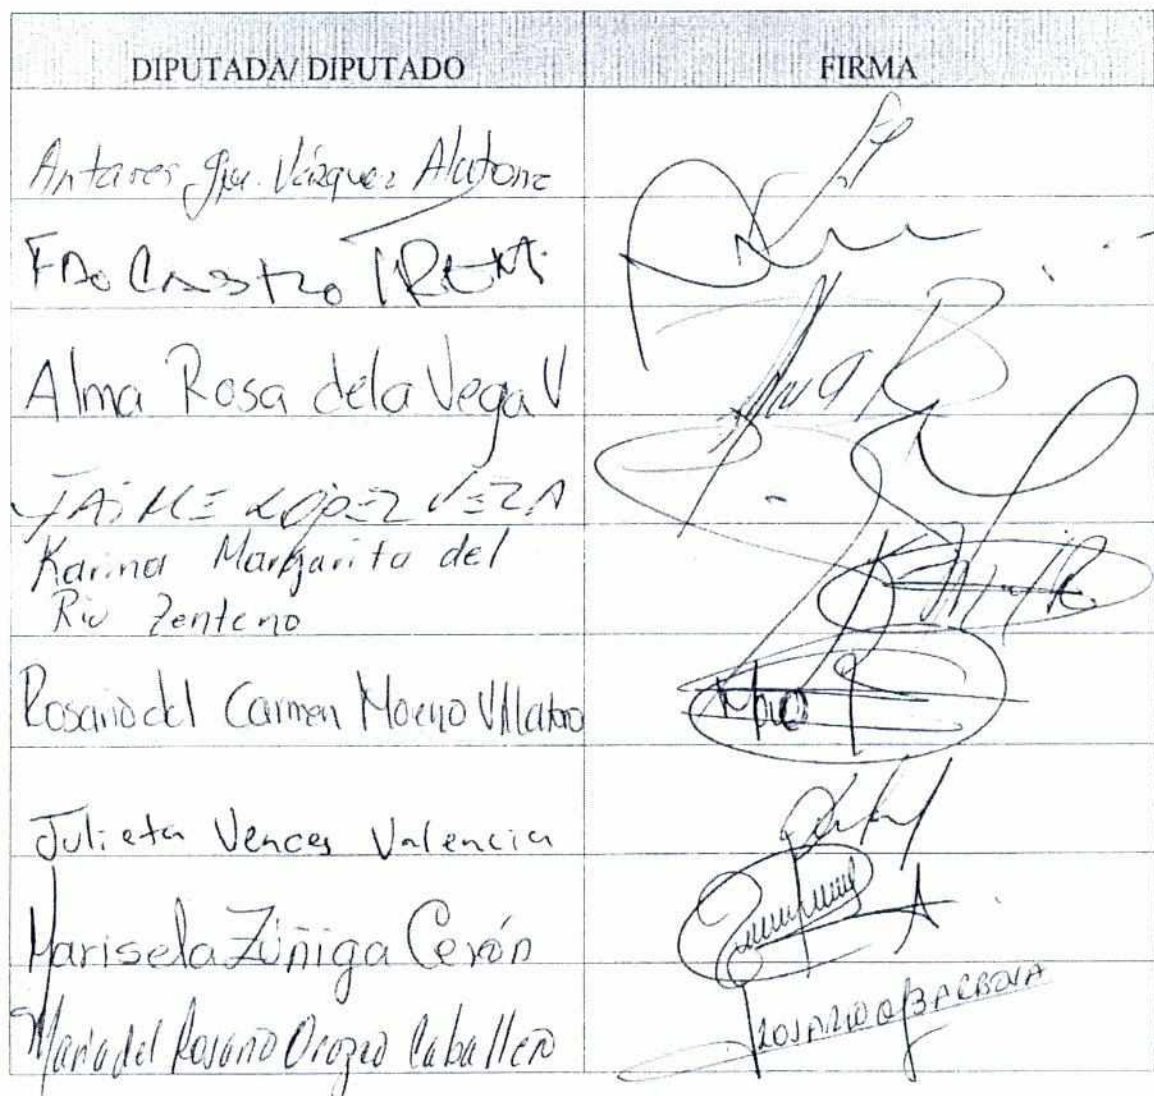 DIPUTADA/ DIPUTADO FIRMA
Antares Gpe. Vázquez Alatorre
FDO CASTRO TRENTI
Alma Rosa de la Vega V
JAIME LÓPEZ VELA
Karina Margarita del
Rio Zenteno
Rosario del Carmen Moreno Villatoro
Julieta Vences Valencia
Marisela Zúñiga Cerón
Maria del Rosario Orozco Caballero ROSARIO O BARBOSA